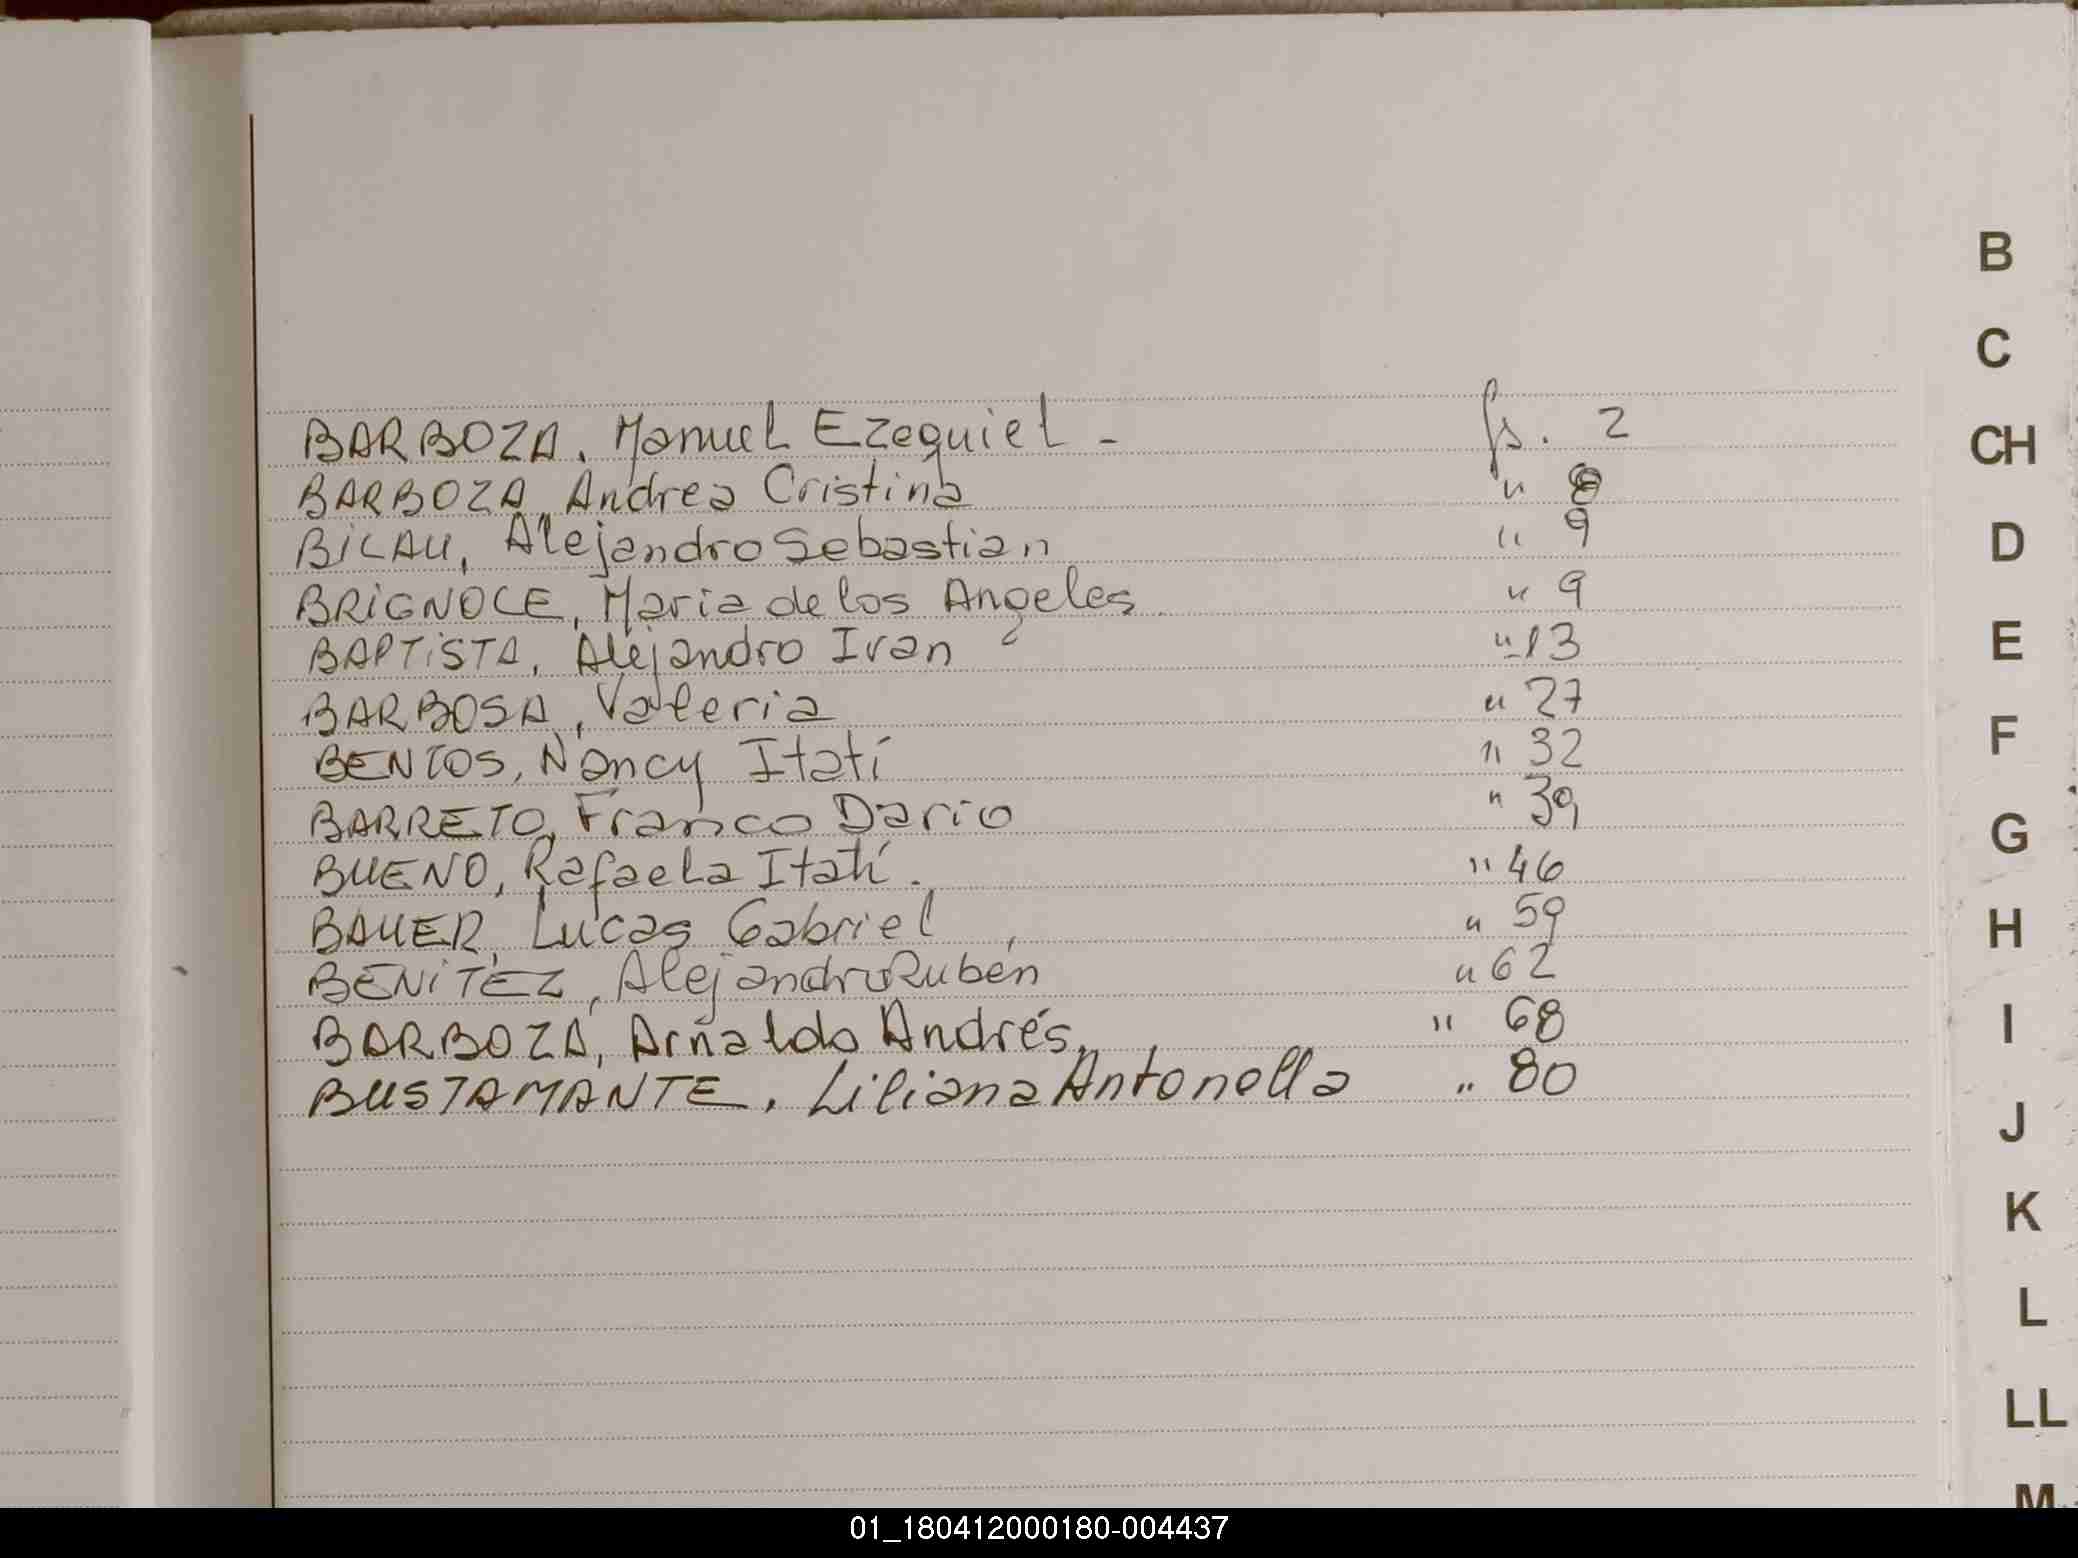 BARBOZA, Manuel Ezequiel - fs. 2
BARBOZA, Andrea Cristina " 8
BILAU, Alejandro Sebastian " 9
BRIGNOLE, Maria de los Angeles " 9
BAPTISTA, Alejandro Ivan " 13
BARBOSA, Valeria " 27
BENTOS, Nancy Itatí " 32
BARRETO, Franco Dario " 39
BUENO, Rafaela Itatí. " 46
BAUER, Lucas Gabriel " 59
BENITEZ, Alejandro Rubén " 62
BARBOZA, Arnaldo Andrés. " 68
BUSTAMANTE, Liliana Antonella " 80
B
C
CH
D
E
F
G
H
I
J
K
L
LL
M
01_180412000180-004437